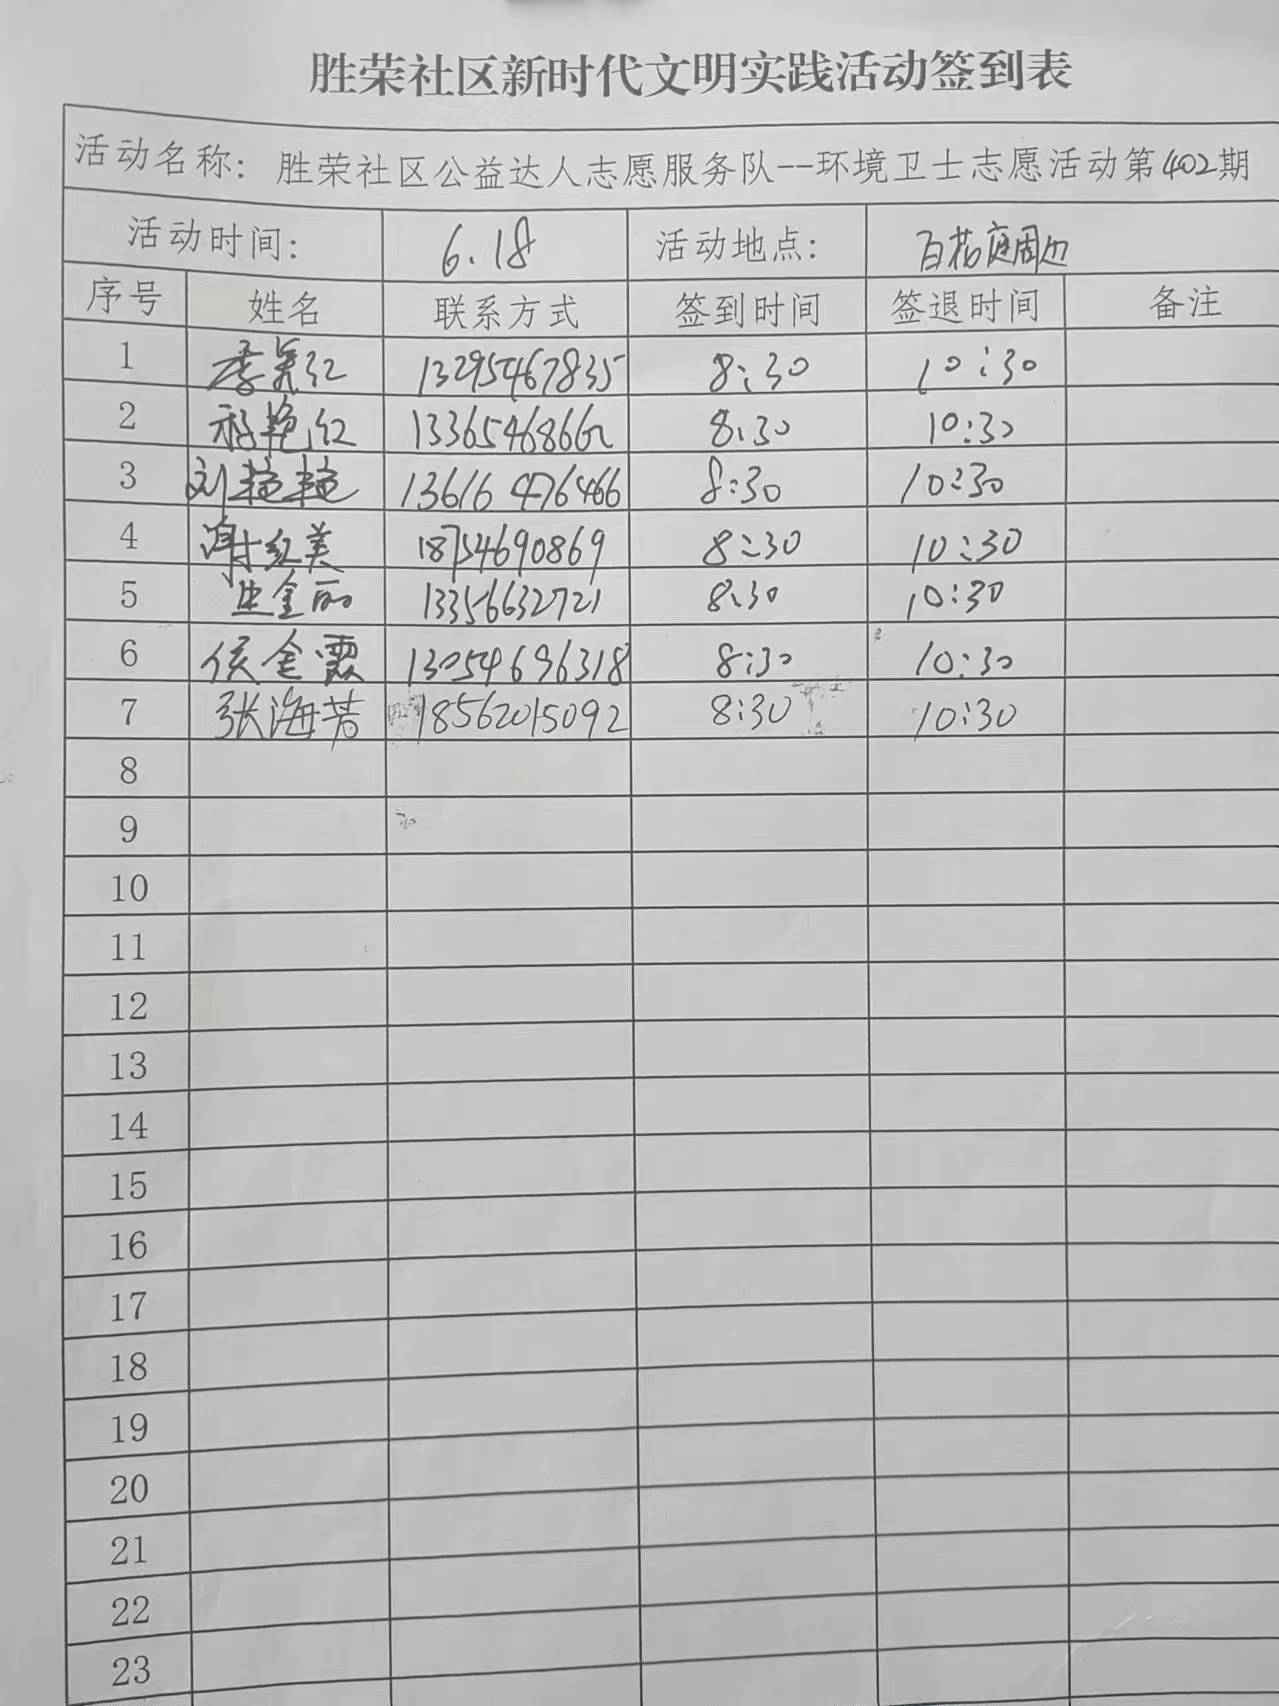 胜荣社区新时代文明实践活动签到表
活动名称: 胜荣社区公益达人志愿服务队--环境卫士志愿活动第402期
活动时间: 6.18 活动地点: 百花庭周边
序号 姓名 联系方式 签到时间 签退时间 备注
1 13295467835 8:30 10:30
2 艳红 8:30 10:30
3 刘艳艳 13616476466 8:30 10:30
4 谢红美 18754690869 8:30 10:30
5 金丽 13356632721 8:30 10:30
6 侯金霞 13054696318 8:30 10:30
7 张海芳 18562015092 8:30 10:30
8
9
10
11
12
13
14
15
16
17
18
19
20
21
22
23